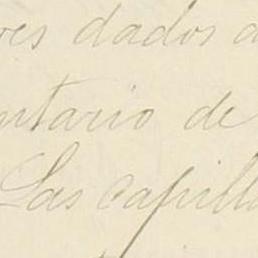 res dados a
ntario de
Las capill